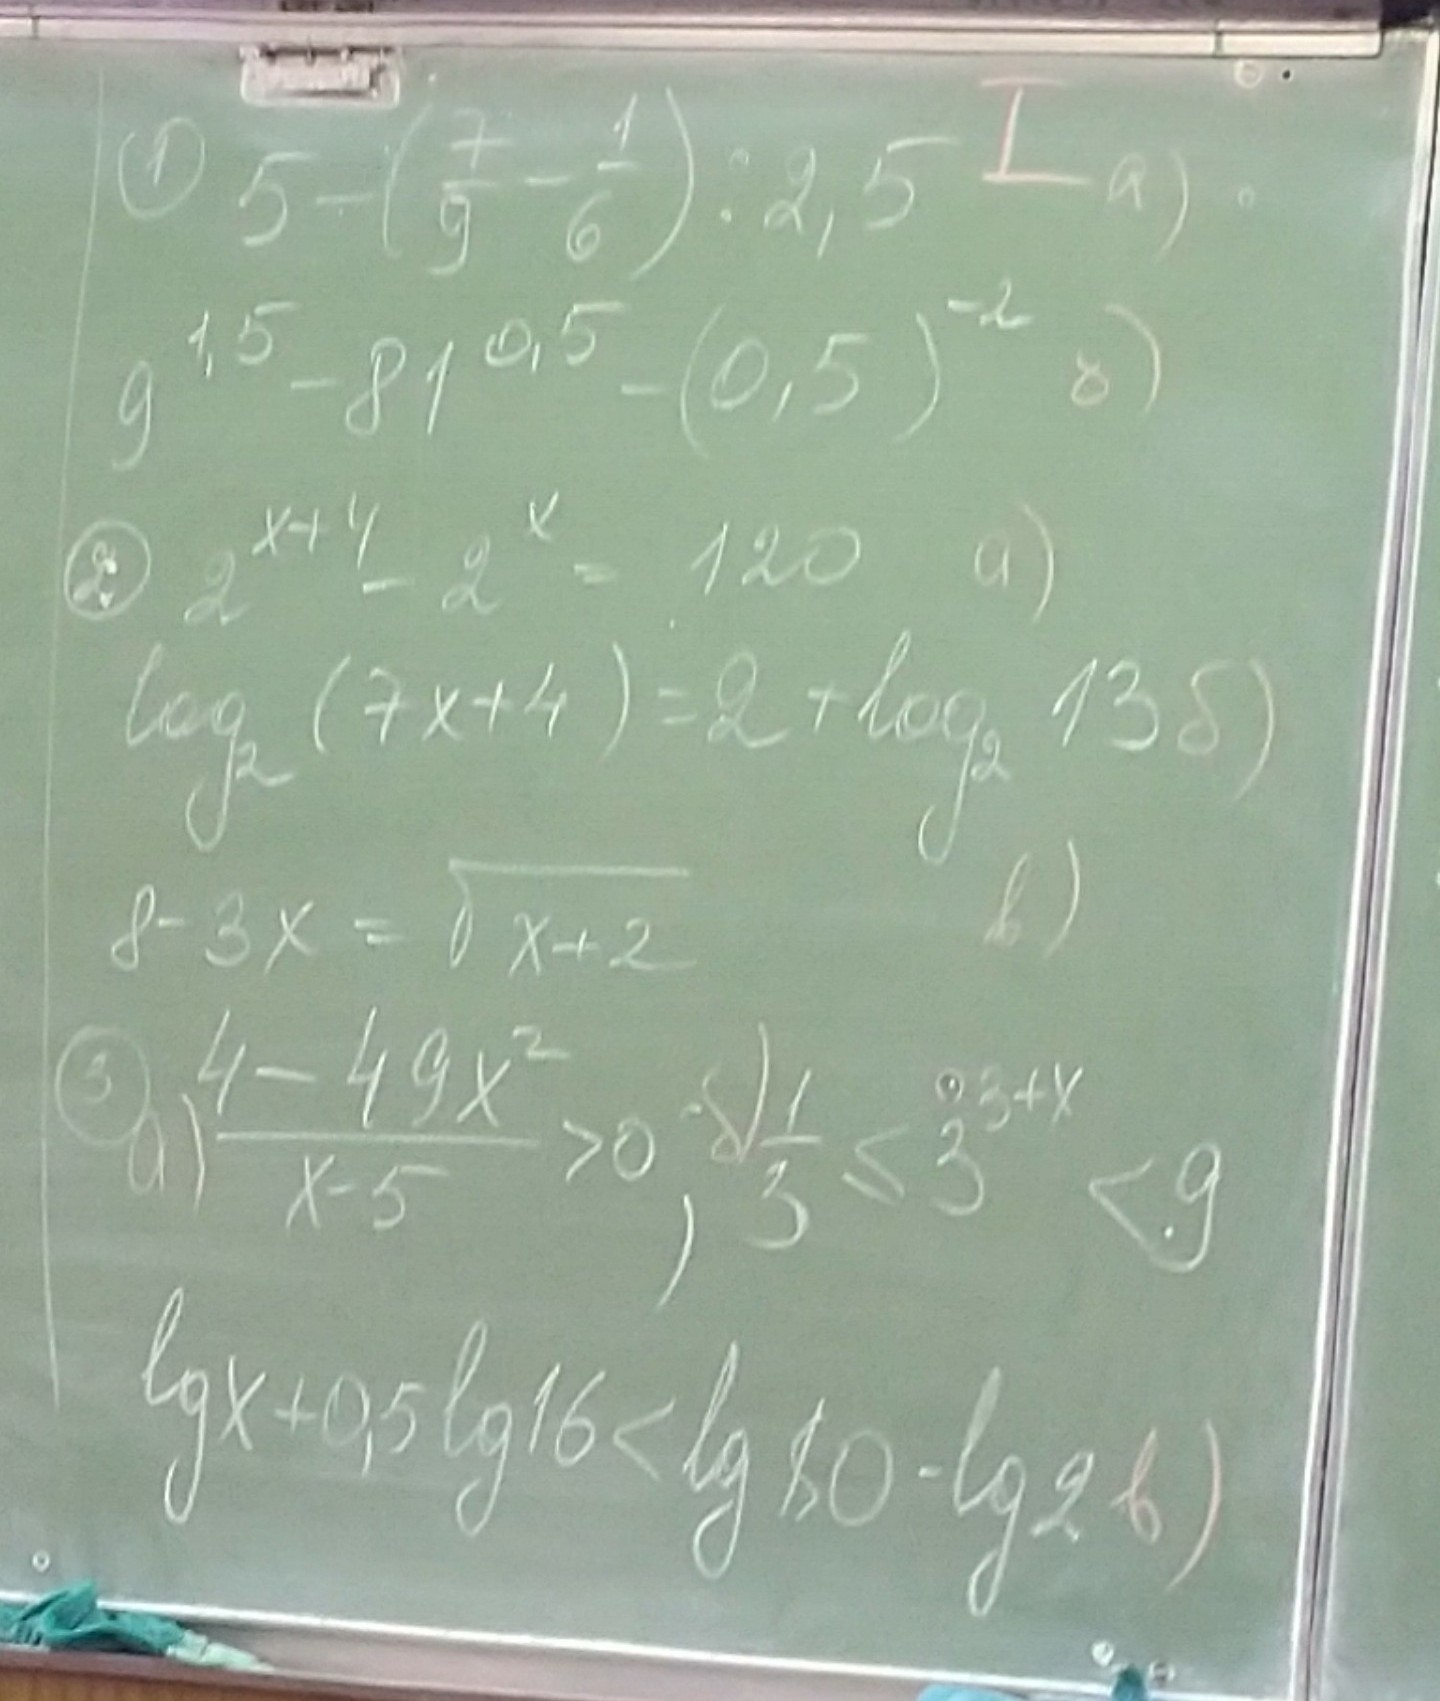 ① 5-(7/9-1/6):2,5 I а)
9^1,5-81^0,5-(0,5)^-2 б)
② 2^x+4-2^x=120 а)
log₂(7x+4)=2+log₂13 б)
8-3x=√x+2 в)
③ а) 4-49x²/x-5>0, б) 1/3≤3^3+x<9
lgx+0,5lg16<lg -lg2 в)